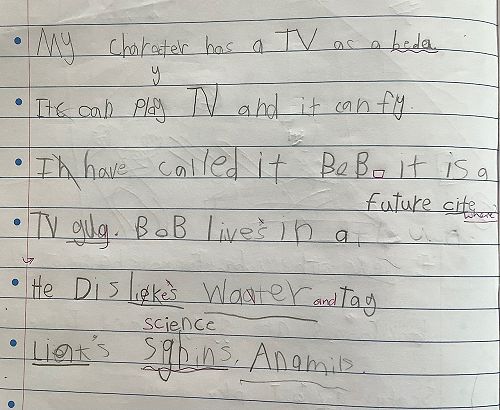 My character has a TV as a heda
y
It can play TV and it can fly.
I have called it BoB. it is a
future cite
where
TV gulg. BoB live's in a
He Dis liake's Waater and Tag
science
Liak's Sghins. Anamils.